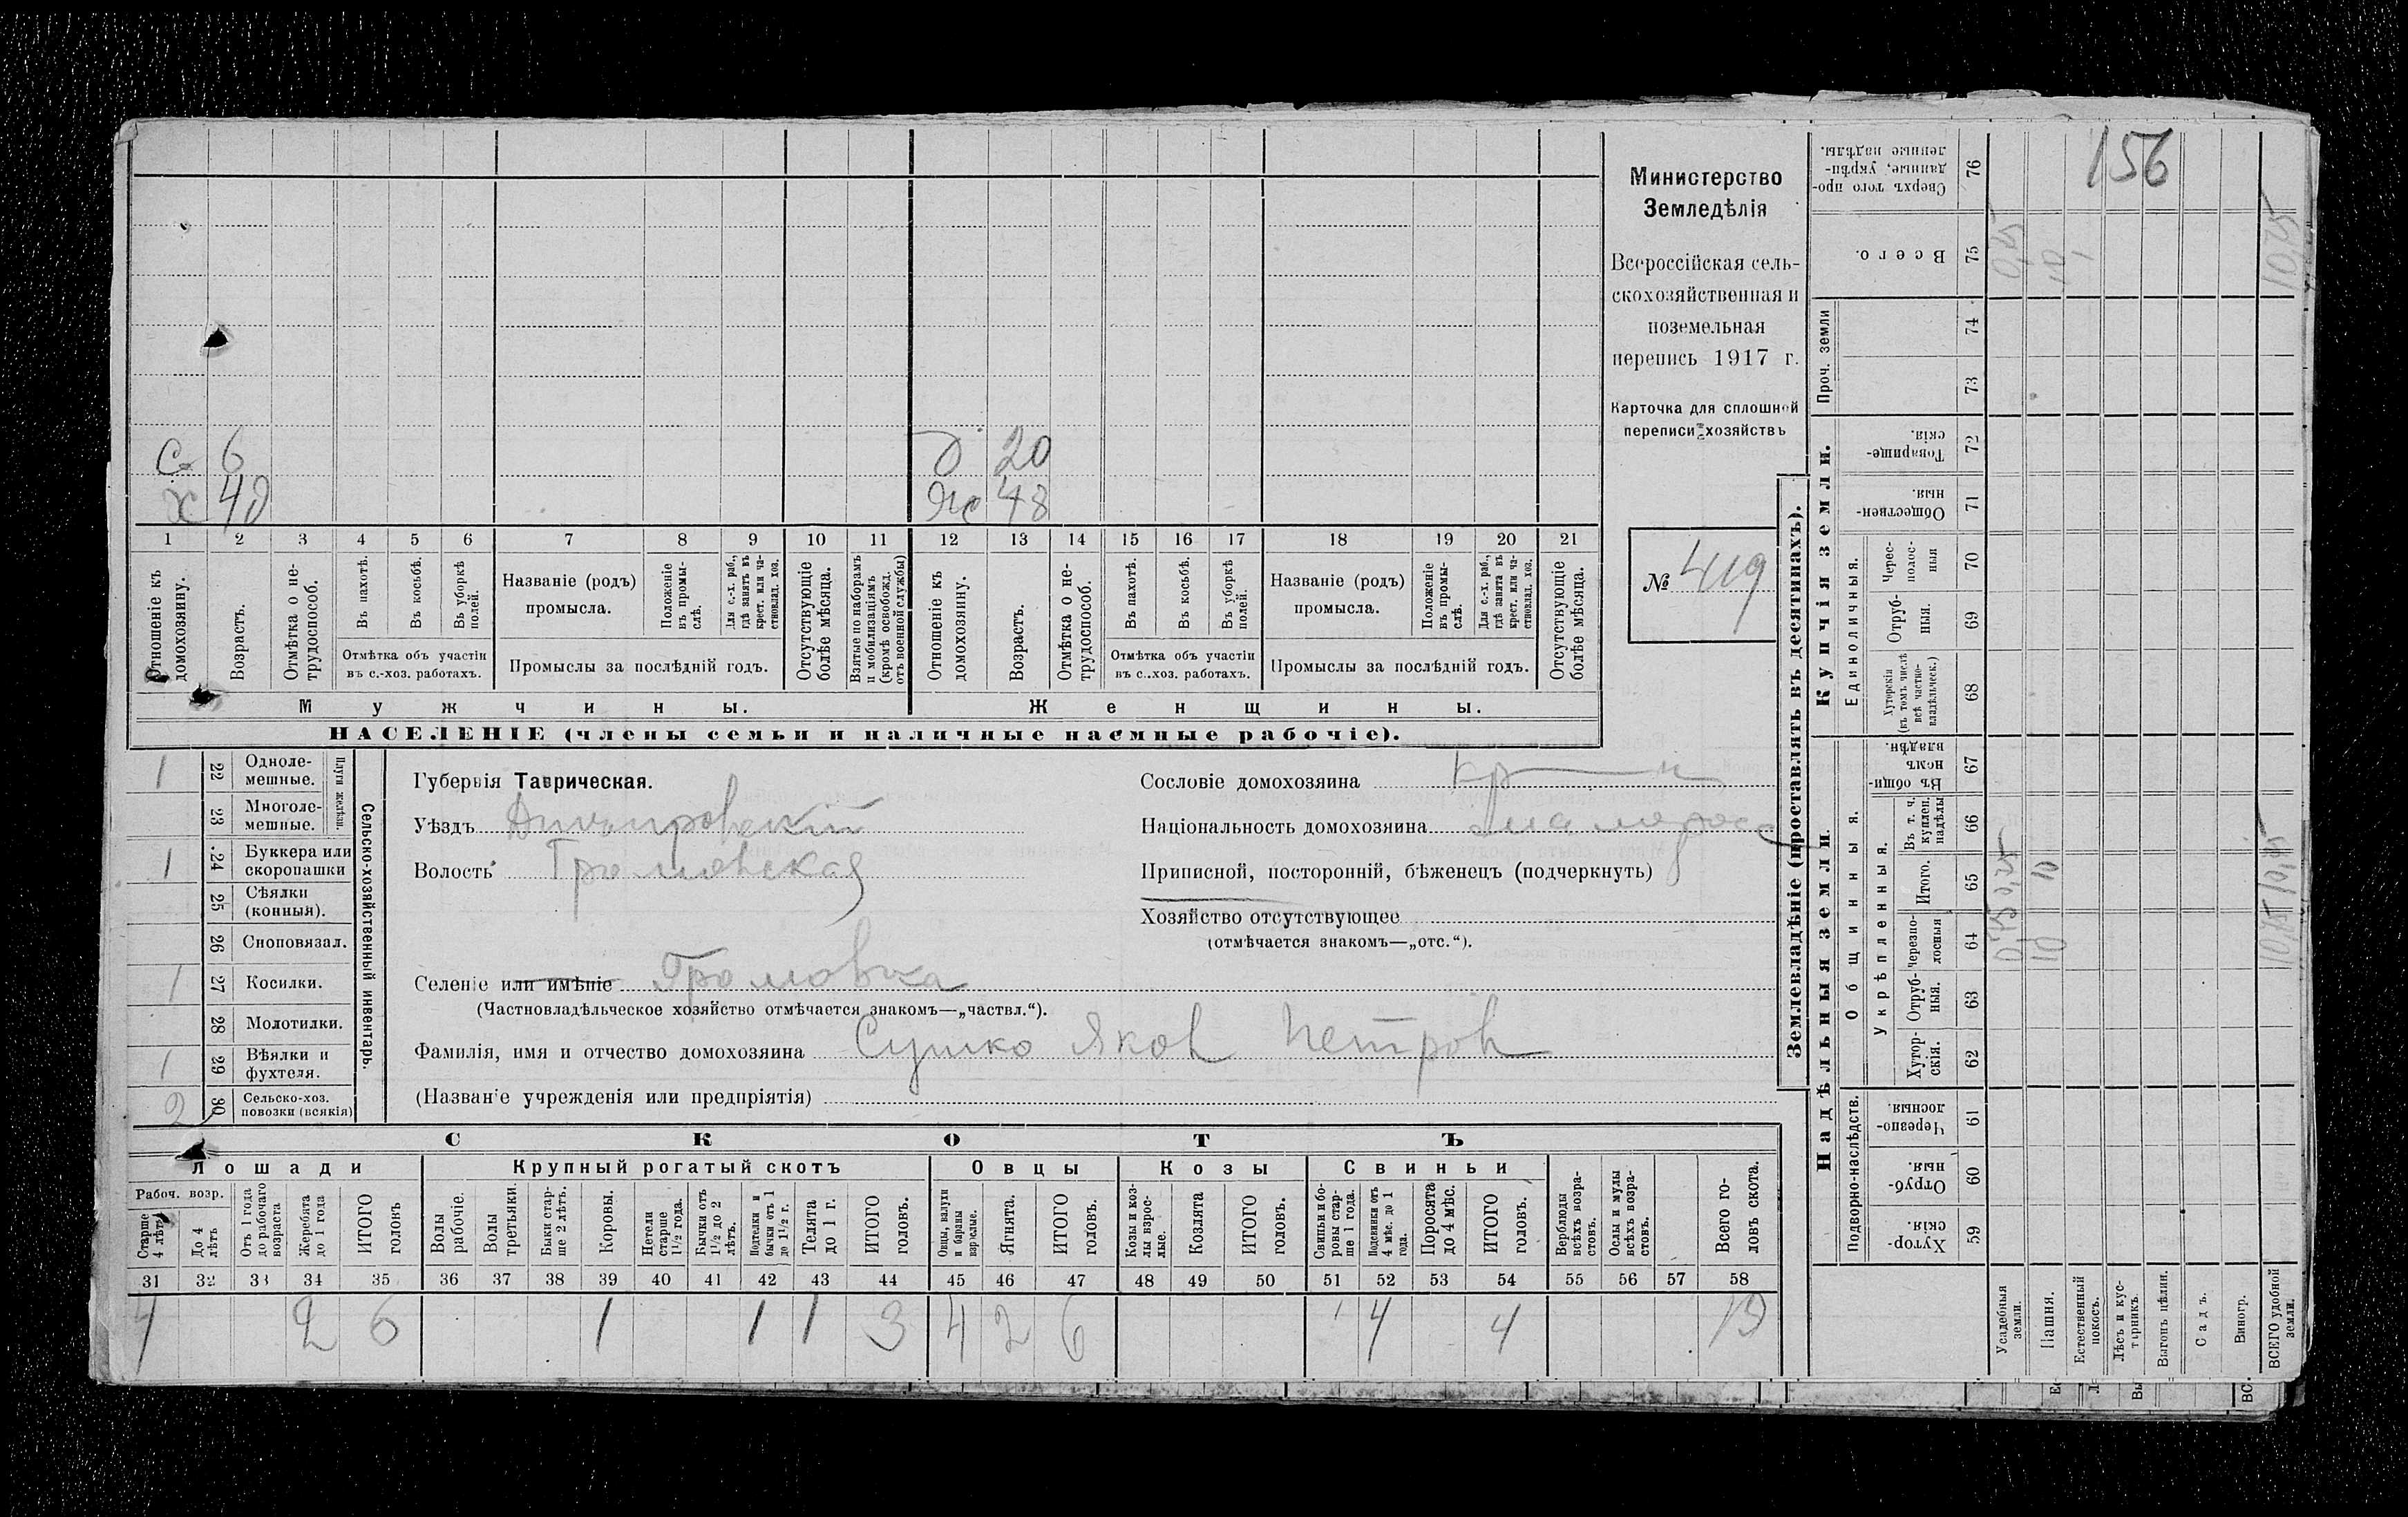 156
Министерство
Земледѣлія
Всероссійская сель-
скохозяйственная и
поземельная
перепись 1917 г.
Карточка для сплошной
переписи хозяйствъ
№ 419
С 6
Х 48
д 20
Ж 48
1 2 3 4 5 6 7 8 9 10 11 12 13 14 15 16 17 18 19 20 21
Отношеніе къ домохозяину.
Возрастъ.
Отмѣтка о не-трудоспособ.
Въ пахотѣ.
Въ косьбѣ.
Въ уборкѣ полей.
Отмѣтка объ участіи
въ с.-хоз. работахъ.
Названіе (родъ)
промысла.
Положеніе въ промы-слѣ.
Для с.-х. раб., гдѣ занятъ въ крест. или ча-стновлад. хоз.
Промыслы за послѣдній годъ.
Отсутствующіе болѣе мѣсяца.
Взятые по наборамъ и мобилизаціямъ (кромѣ освобожд. отъ военной службы)
Отношеніе къ домохозяину.
Возрастъ.
Отмѣтка о не-трудоспособ.
Въ пахотѣ.
Въ косьбѣ.
Въ уборкѣ полей.
Отмѣтка объ участіи
въ с..хоз. работахъ.
Названіе (родъ)
промысла.
Положеніе въ промы-слѣ.
Для с.-х. раб., гдѣ занята въ крест. или ча-стновлад. хоз.
Промыслы за послѣдній годъ.
Отсутствующіе болѣе мѣсяца.
Мужчины.
Женщины.
НАСЕЛЕНІЕ (члены семьи и наличные наемные рабочіе).
1 22 Одноле-мешные.
23 Многоле-мешные.
Плуги желѣзн.
1 24 Буккера или скоропашки
25 Сѣялки (конныя).
26 Сноповязал.
1 27 Косилки.
28 Молотилки.
1 29 Вѣялки и фухтеля.
2 30 Сельско-хоз. повозки (всякія)
Сельско-хозяйственный инвентарь.
Губернія Таврическая.
Уѣздъ Днѣпровскій
Волость Громовская
Селеніе или имѣніе Громовка
(Частновладѣльческое хозяйство отмѣчается знакомъ—„частвл.“).
Фамилія, имя и отчество домохозяина Сушко Яков Петров
(Названіе учрежденія или предпріятія)
Сословіе домохозяина кр-н
Національность домохозяина малоросс
Приписной, посторонній, бѣженецъ (подчеркнуть)
Хозяйство отсутствующее
(отмѣчается знакомъ—„отс.“).
СКОТЪ
Лошади
Крупный рогатый скотъ
Овцы
Козы
Свиньи
Рабоч. возр.
Старше 4 лѣтъ
До 4 лѣтъ
Отъ 1 года до рабочаго возраста
Жеребята до 1 года
ИТОГО головъ
Волы рабочіе.
Волы третьяки.
Быки стар-ше 2 лѣтъ.
Коровы.
Нетели старше 1½ года.
Бычки отъ 1½ до 2 лѣтъ.
Подтелки и бычки отъ 1 до 1½ г.
Телята до 1 г.
ИТОГО головъ.
Овцы, валухи и бараны взрослые.
Ягнята.
ИТОГО головъ.
Козы и коз-лы взрос-лые.
Козлята
ИТОГО головъ.
Свиньи и бо-ровы стар-ше 1 года.
Подсвинки отъ 4 мѣс. до 1 года.
Поросята до 4 мѣс.
ИТОГО головъ.
Верблюды всѣхъ возра-стовъ.
Ослы и мулы всѣхъ возра-стовъ.
Всего го-ловъ скота.
31 32 33 34 35 36 37 38 39 40 41 42 43 44 45 46 47 48 49 50 51 52 53 54 55 56 57 58
4 2 6 1 1 1 3 4 2 6 4 4
Землевладѣніе (проставлять въ десятинахъ).
Надѣльныя земли
Купчія земли.
Проч. земли
Подворно-наслѣдств.
Общинныя.
Укрѣпленныя.
Единоличныя.
Хутор-скія. 59
Отруб-ныя. 60
Черезпо-лосныя. 61
Хутор-скія. 62
Отруб-ныя. 63
Черезпо-лосныя 64
Итого. 65
Въ т. ч. куплен. надѣлы 66
Въ общин-номъ владѣн. 67
Хуторскія (въ томъ числѣ всѣ частно-владѣльческ.) 68
Отруб-ныя. 69
Черес-полос-ныя 70
Обществен-ныя. 71
Товарище-скія. 72
73
74
Всего. 75
Сверхъ того про-данные, укрѣп-ленные надѣлы. 76
Усадебныя земли. 0,75
Пашня. 10 10 10
Естественный покосъ.
Лѣсъ и кус-тарникъ.
Выгонъ цѣлин.
Садъ.
Виногр.
ВСЕГО удобной земли. 10,75 10,75 10,75